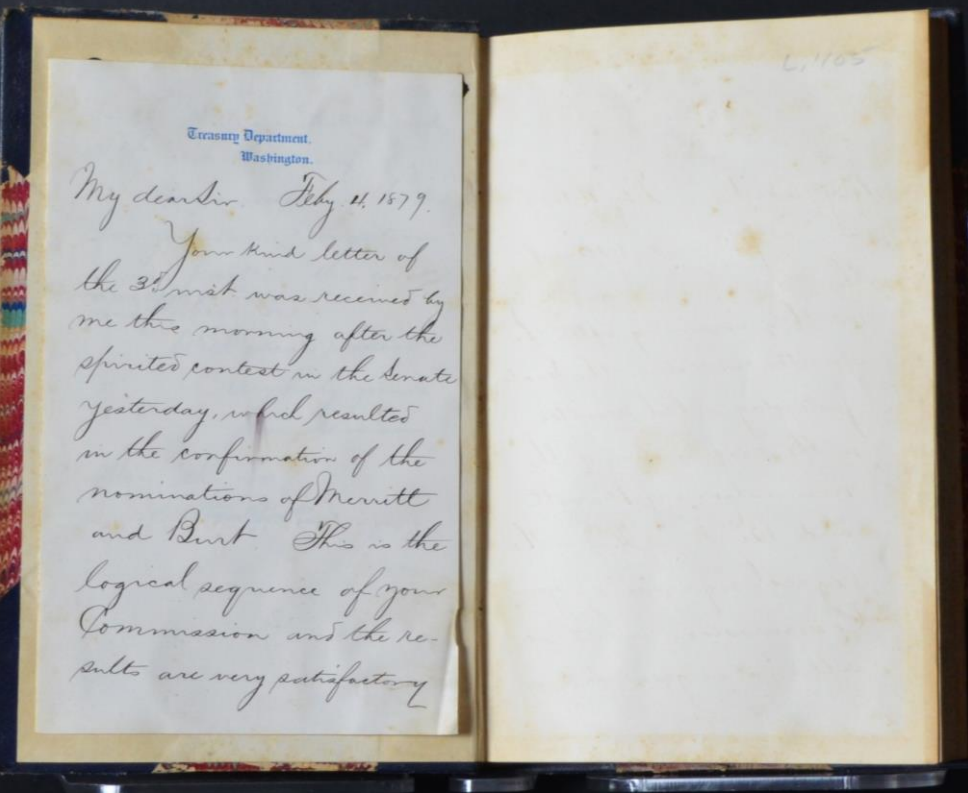 Treasury Department,
Washington.
My dear Sir. Feby. 4. 1879.
Your kind letter of
the 3d inst. was received by
me this morning after the
spirited contest in the Senate
yesterday, which resulted
in the confirmation of the
nominations of Merritt
and Burt This is the
logical sequence of your
Commission and the re-
sults are very satisfactory